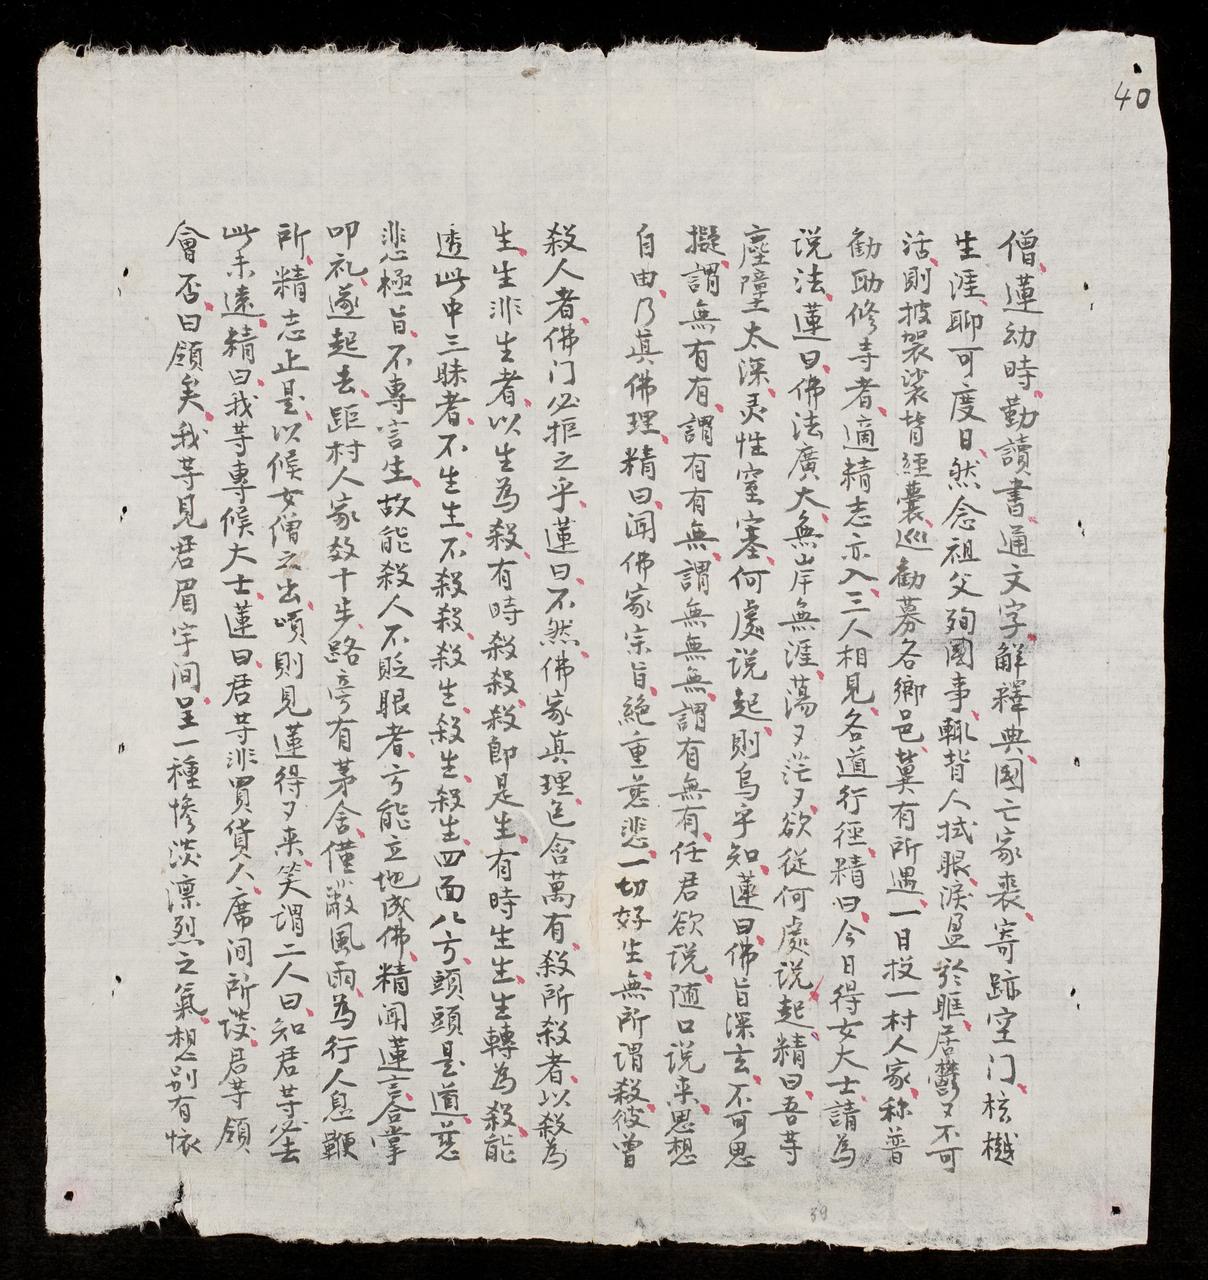 40
僧蓮幼時勤讀書通文字解釋典國亡家喪寄跡空门核樾
生涯聊可度日然念祖父殉國事輒背人拭眼淚盈於眶居鬱々不可
活則披袈裟背經囊巡勸募各鄉邑冀有所遇一日投一村人家称普
勸助修寺者適精志亦入三人相見各道行徑精曰今日得女大士請為
说法蓮曰佛法廣大無岸無涯蕩々茫々欲從何處说起精曰吾等
塵障太深灵性窒塞何處说起則烏乎知蓮曰佛旨深玄不可思
擬謂無有有謂有有無謂無無無謂有無有任君欲说随口说来思想
自由乃真佛理精曰闻佛家宗旨絶重慈悲一切好生無所谓殺彼曾
殺人者佛门必拒之乎蓮曰不然佛家真理包含萬有殺所殺者以殺為
生生非生者以生為殺有時殺殺殺即是生有時生生生轉為殺能
透此中三昧者不生生不殺殺殺生殺生殺生四面八方頭頭是道慈
悲極旨不專言生故能殺人不貶眼者方能立地成佛精闻蓮言合掌
叩礼遂起去距村人家数十步路旁有茅舍僅蔽風雨為行人息鞭
所精志止是以候女僧之出頃則見蓮得々来笑谓二人曰知君等必去
此未遠精曰我等專候大士蓮曰君等非買貨人席间所談君等領
會否曰領矣我等見君眉宇间呈一種慘淡凛烈之氣想别有懷
39